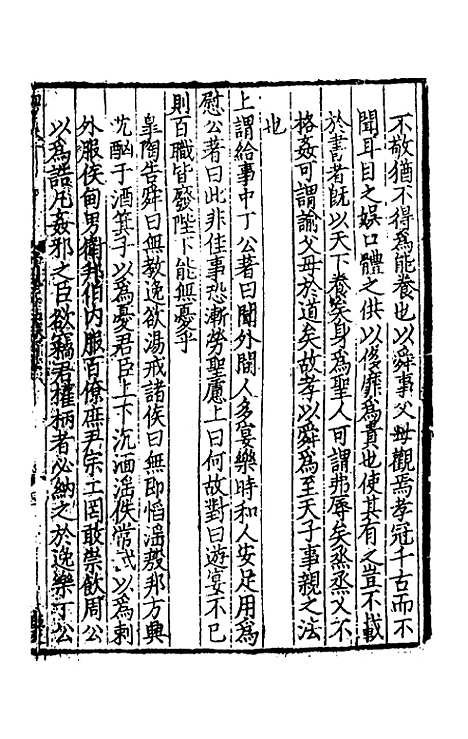 不敬猶不得為能養也以舜事父母觀焉孝冠千古而不
聞耳目之娛口體之供以侈靡為貴也使其有之豈不載
於書者旣以天下養矣身為聖人可謂弗辱矣烝烝乂不
格姦可謂諭父母於道矣故孝以舜為至天子事親之法
也
上謂給事中丁公著曰聞外間人多宴樂時和人安足用為
慰公著曰此非佳事恐漸勞聖慮上曰何故對曰遊宴不已
則百職皆廢陛下能無憂乎
臯陶告舜曰無教逸欲湯戒諸侯曰無即慆滛殷邦方興
沈酗于酒箕子以為憂君臣上下沉湎滛佚常武以為刺
外服侯甸男衛邦伯内服百僚庶尹宗工罔敢崇飲周公
以為誥凡姦邪之臣欲竊君權柄者必納之於逸樂丁公